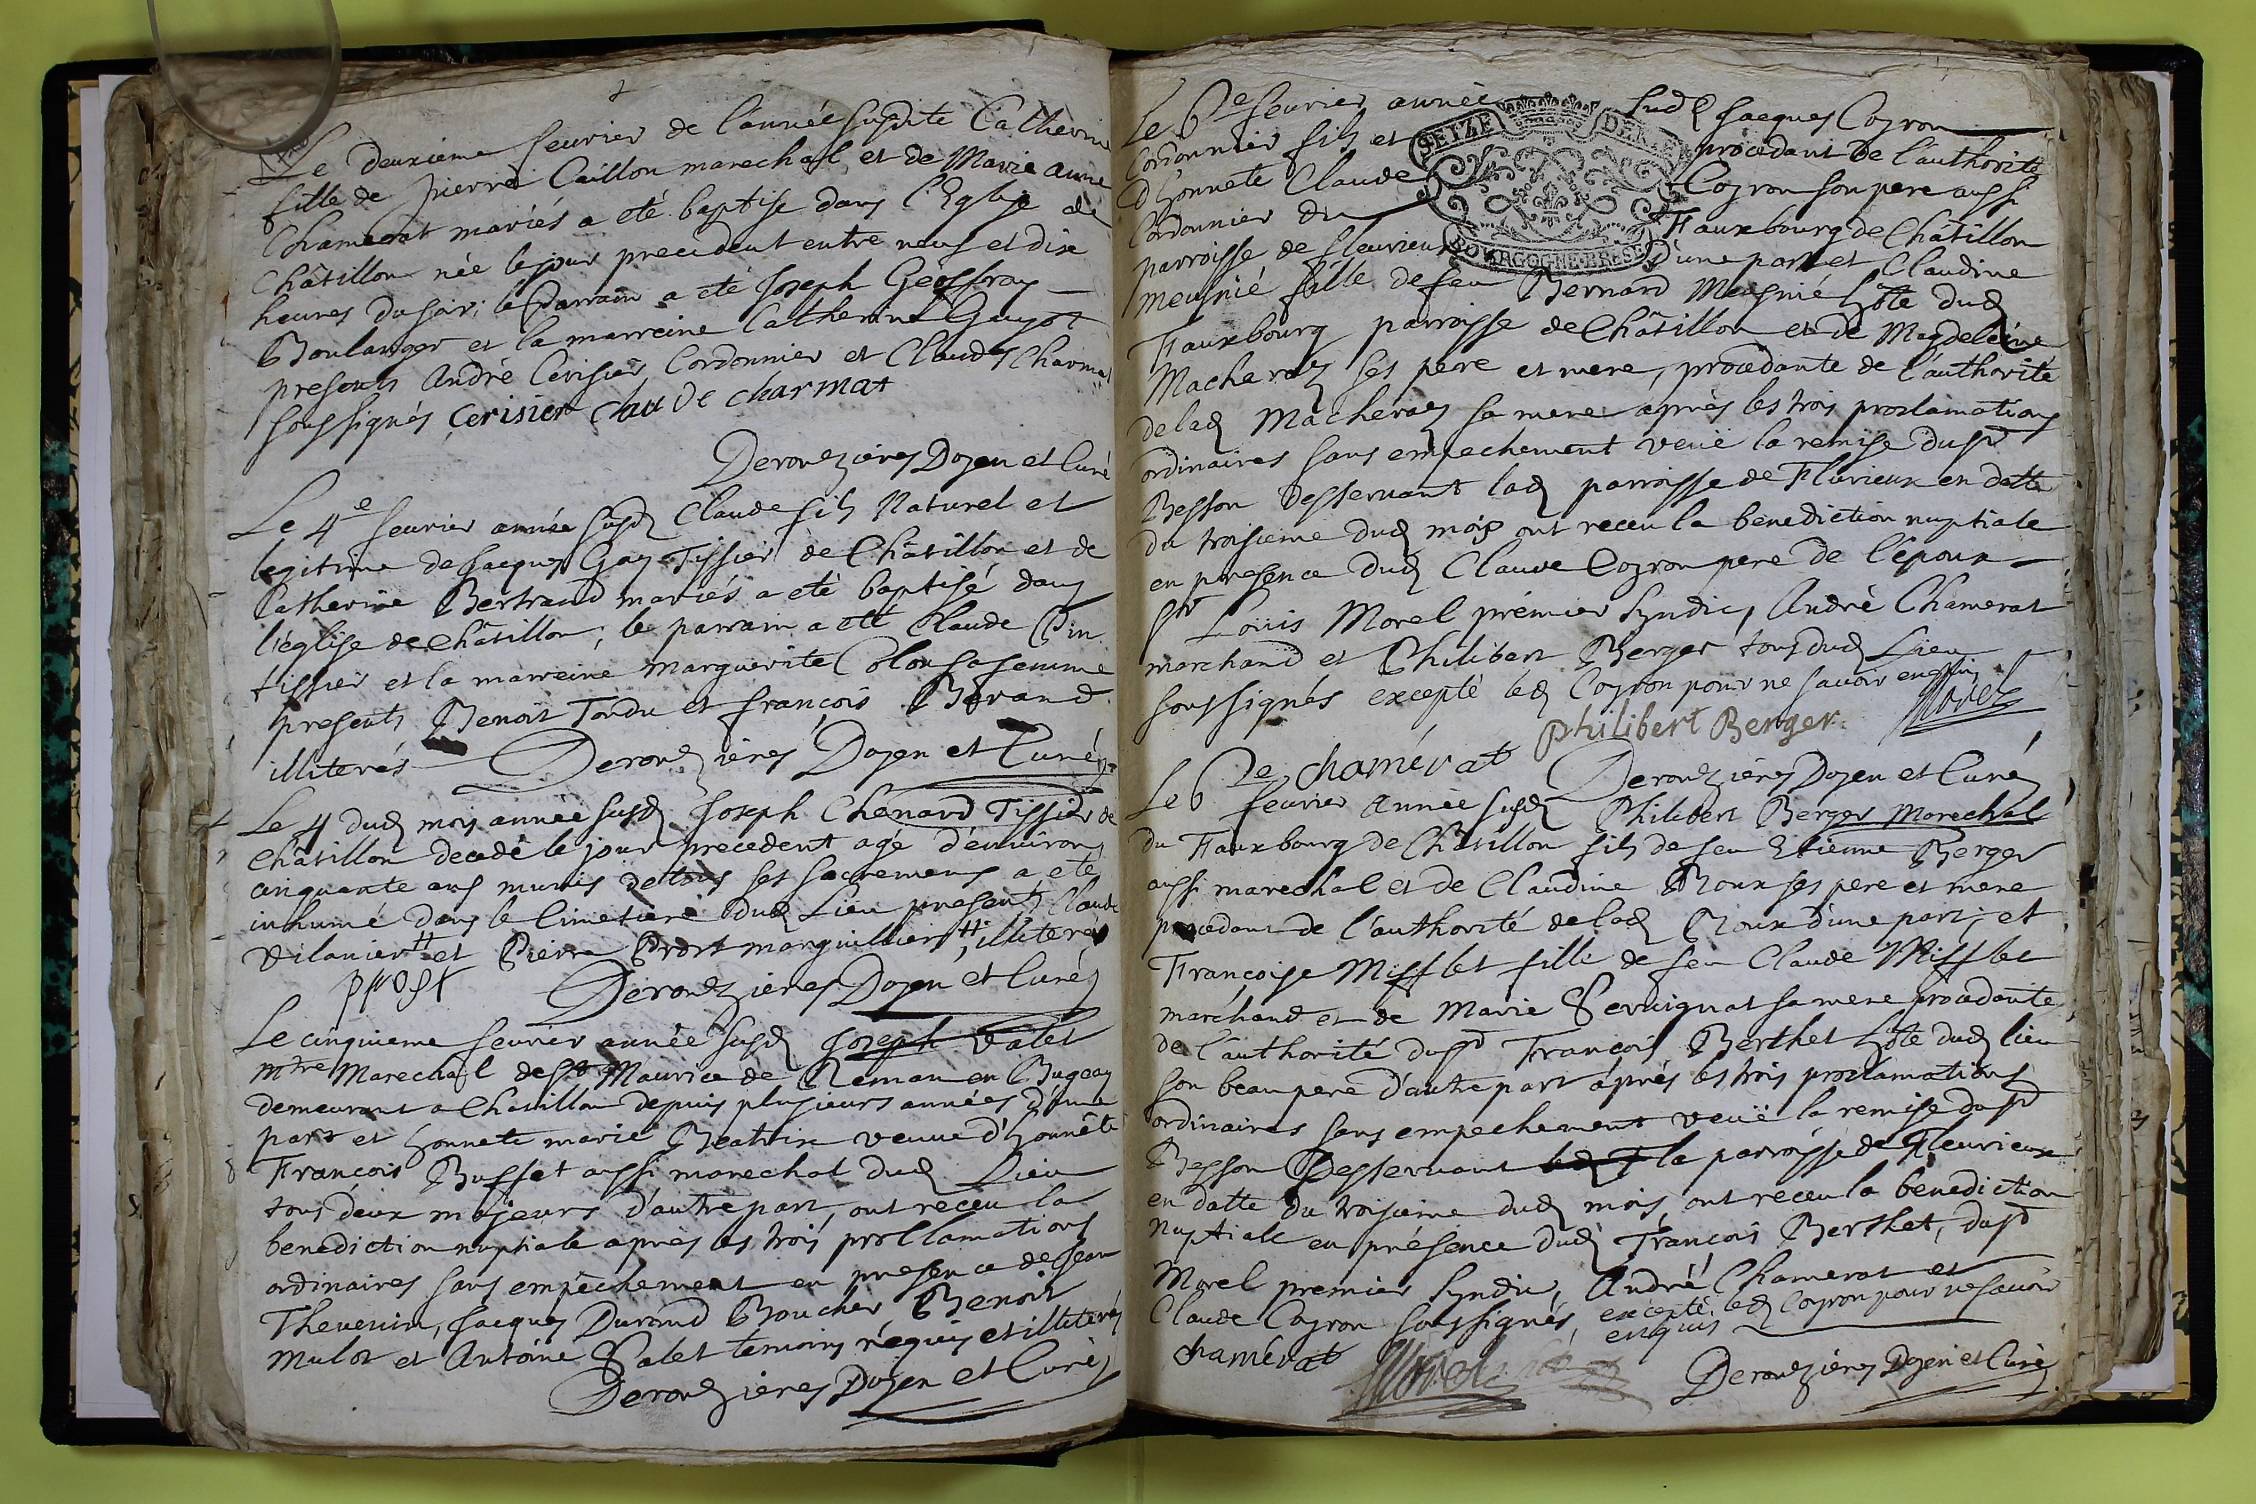 Le deuxieme fevrier de l'année susdite Catherine
fille de pierre Caillon marechal et de Marie anne
Chamerat mariés a eté baptisé dans l'Eglise de
Châtillon née le jour precedent entre neuf et dix
heures du soir; le parrain a eté Joseph Geoffray
Boulanger et la marreine Catherine Guyot
presents André Cerisier Cordonnier et Claude Charmat
soussignés cerisier claude charmat
Derouzieres Doyen et Curé
Le 4e fevrier année susd Claude fils Naturel et
legitime de Jacques Gay Tissier de Châtillon et de
Catherine Bertrand mariés a eté baptisé dans
l'église de Châtillon; le parrain a eté Claude Pin
tissier et la marreine Marguerite Colon sa femme
presents Benoit Tondu et françois Berand
illiterés Derouzieres Doyen et Curé
Le 4 dud mois année susd Joseph Chenard Tissier de
Châtillon decedé le jour precedent agé d'environ
cinquante ans munis de tous ses sacremens a eté
inhumé dans le Cimetiere dud Lieu presents Claude
Vilanier et Pierre Prost marguillier, illiterés
prost Derouzieres Doyen et Curé
Le cinquieme fevrier année susd Joseph Valet
mtre Marechal de St Maurice de Reman en Bugeay
demeurant a Chatillon depuis plusieurs années d'une
part et honnete marie Beatrix veuve d'honnête
François Buffet aussi marechal dud Lieu
tous deux majeurs d'autre part, ont receu la
benediction nuptiale après les trois procllamations
ordinaires sans empêchement en presence de Jean
Thevenin, Jacques Durand Boucher Benoit
Mulot et Antoine Valet temoins réquis et illiterés
Derouzieres Doyen et Curé
Le 6e fevrier année susd Jacques Coyron
Cordonnier fils et procedant de l'authorité
d'honnete Claude Coyron son pere aussi
Cordonnier du Fauxbourg de Châtillon
SEIZE DEN.
BOURGOGNE BRESSE
parroisse de fleurieux d'une part et Claudine
Meusnié fille de feu Bernard Meusnié hôte dud
Fauxbourg parroisse de Châtillon et de Magdeleine
Macheray ses pere et mere, procedante de l'authorité
de lad Macheray sa mere après les trois proclamations
ordinaires sans empechement veuë la remise du Sr
Besson desservant lad parroisse de Flurieux en datte
du troisieme dud mois ont receu la benediction nuptiale
en presence dud Claude Coyron pere de l'époux
Sr Louis Morel prémier Syndic, André Chamerat
marchand et Philibert Berger tous dud Lieu
soussignés excepté led Coyron pour ne savoir enquis
Philibert Berger Morel
chamérat Derouzieres Doyen et Curé
Le 6e fevrier année susd Philibert Berger Marechal
du Fauxbourg de Châtillon fils de feu Etienne Berger
aussi marechal et de Claudine Roux ses pere et mere
procedant de l'authorité de lad Roux d'une part; et
Françoise Mifflet fille de feu Claude Mifflet
marchand et de Marie Pervuignat sa mere procedante
de l'authorité du Sr François Berthet hôte dud lieu
son beau pere d'autre part après les trois proclamations
ordinaires sans empechement veuë la remise du Sr
Besson Desservant la parroisse de Fleurieux
en datte du troisieme dud mois, ont receu la bénédiction
Nuptiale en présence dud François Berthet, du Sr
Morel premier Syndic, André Chamerat et
Claude Coyron soussignés, excepté led Coyron pour ne savoir
enquis
chamérat Morel Derouzieres Doyen et Curé